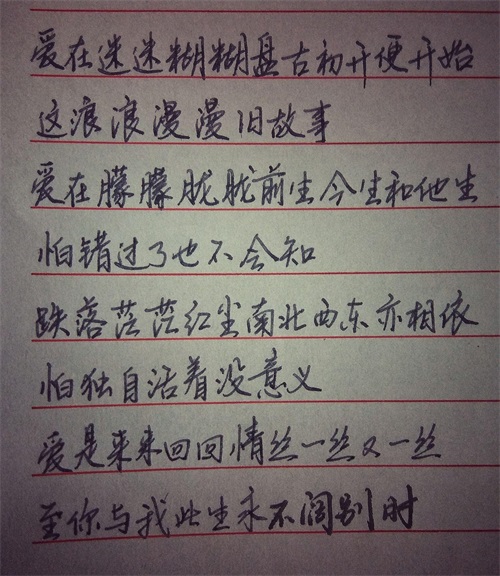 爱在迷迷糊糊盘古初开便开始
这浪浪漫漫旧故事
爱在朦朦胧胧前生今生和他生
怕错过了也不会知
跌落茫茫红尘南北西东亦相依
怕独自活着没意义
爱是来来回回情丝一丝又一丝
至你与我此生永不阔别时